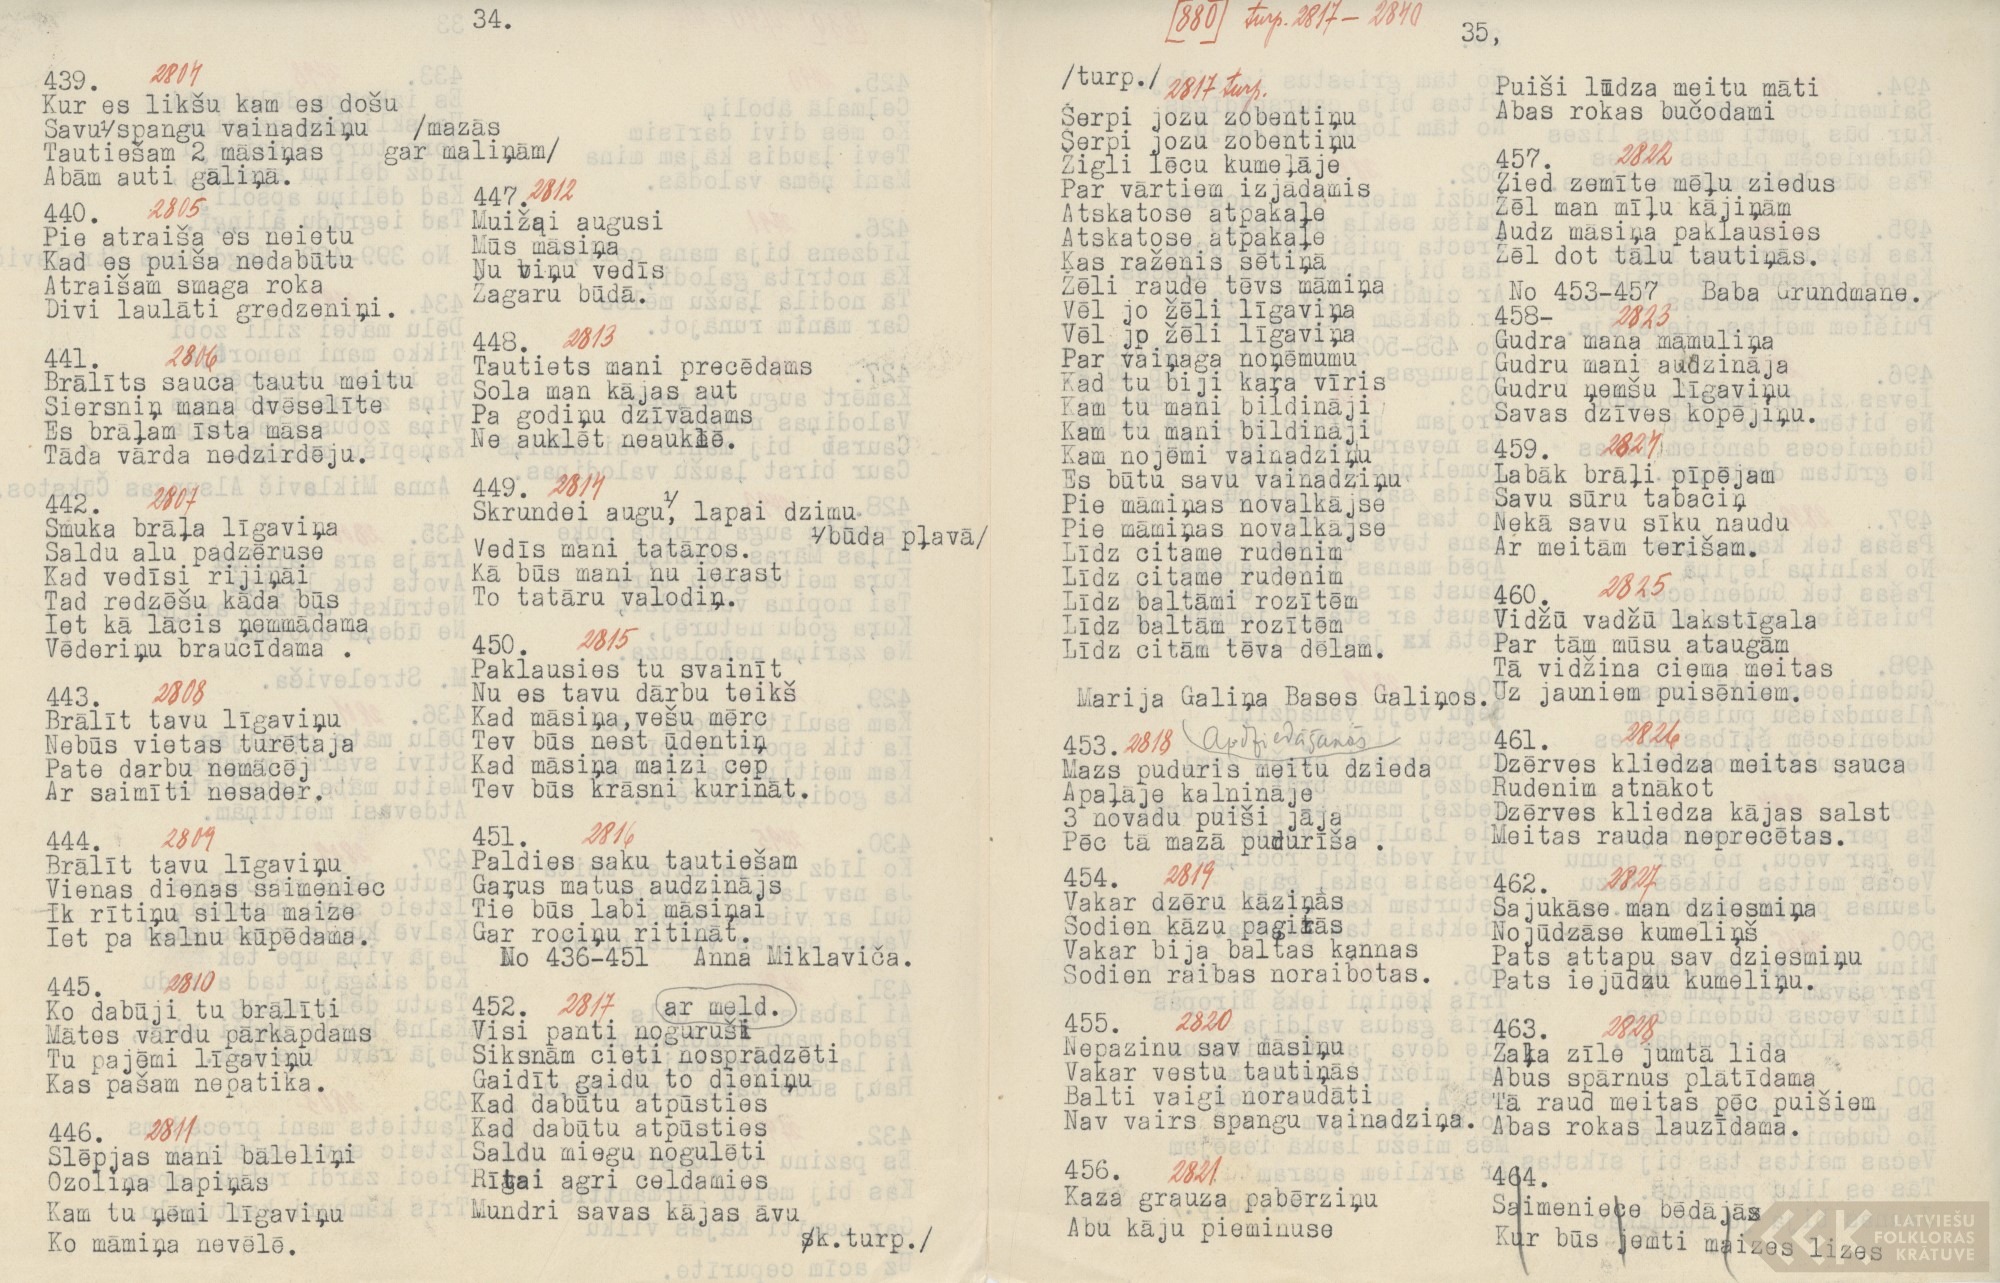 34.
439. 2804
Kur es likšu kam es došu
Savu1/spangu vainadziņu /mazās
Tautiešam 2 māsiņas gar maliņām/
Abām auti gāliņā.
440. 2805
Pie atraiša es neietu
Kad es puiša nedabūtu
Atraišam smaga roka
Divi laulāti gredzeniņi.
441. 2806
Brālīts sauca tautu meitu
Siersniņ mana dvēselīte
Es brāļam īsta māsa
Tāda vārda nedzirdēju.
442. 2807
Smuka brāļa līgaviņa
Saldu alu padzēruse
Kad vedīsi rijiņāi
Tad redzēšu kāda būs
Iet kā lācis ņemmādama
Vēderiņu braucīdama .
443. 2808
Brālīt tavu līgaviņu
Nebūs vietas turētaja
Pate darbu nemācēj
Ar saimīti nesader.
444. 2809
Brālīt tavu līgaviņu
Vienas dienas saimeniec
Ik rītiņu silta maize
Iet pa kalnu kūpēdama.
445. 2810
Ko dabūji tu brālīti
Mātes vārdu pārkāpdams
Tu pajēmi līgaviņu
Kas pašam nepatika.
446. 2811
Slēpjas mani bāleliņi
Ozoliņa lapiņās
Kam tu ņēmi līgaviņu
Ko māmiņa nevēlē.
447. 2812
Muižāi augusi
Mūs māsiņa
Nu viņu vedīs
Žagaru būdā.
448. 2813
Tautiets mani precēdams
Sola man kājas aut
Pa godiņu dzīvādams
Ne auklēt neauklē.
449. 2814
Skrundei augu1/, lapai dzimu
1/būda pļavā/
Vedīs mani tatāros.
Kā būs mani nu ierast
To tatāru valodiņ.
450. 2815
Paklausies tu svainīt
Nu es tavu dārbu teikš
Kad māsiņa,vešu mērc
Tev būs nest ūdentiņ
Kad māsiņa maizi cep
Tev būs krāsni kurināt.
451. 2816
Paldies saku tautiešam
Gaŗus matus audzinājs
Tie būs labi māsiņai
Gar rociņu ritināt.
No 436-451 Anna Miklaviča.
452. 2817 ar meld.
Visi panti noguruši
Siksnām cieti nosprādzēti
Gaidīt gaidu to dieniņu
Kad dabūtu atpūsties
Kad dabūtu atpūsties
Saldu miegu nogulēti
Rītai agri celdamies
Mundri savas kājas āvu
sk.turp./
[880] turp. 2817 - 2840
35,
/turp./ 2817 turp.
Šerpi jozu zobentiņu
Šerpi jozu zobentiņu
Žigli lēcu kumeļāje
Par vārtiem izjādamis
Atskatose atpakaļe
Atskatose atpakaļe
Kas raženis sētiņā
Žēli raude tēvs māmiņa
Vēl jo žēli līgaviņa
Vēl jo žēli līgaviņa
Par vaiņaga noņēmumu
Kad tu biji kaŗa vīris
Kam tu mani bildināji
Kam tu mani bildināji
Kam nojēmi vainadziņu
Es būtu savu vainadziņu
Pie māmiņas novalkājse
Pie māmiņas novalkājse
Līdz citame rudenim
Līdz citame rudenim
Līdz baltāmi rozītēm
Līdz baltām rozītēm
Līdz citām tēva dēlam.
Marija Galiņa Bases Galiņos.
453. 2818 Apdziedāšanās
Mazs puduris meitu dzieda
Apaļāje kalnināje
3 novadu puiši jāja
Pēc tā mazā pudurīša .
454. 2819
Vakar dzēru kāziņās
Sodien kāzu pagirās
Vakar bija baltas kannas
Sodien raibas noraibotas.
455. 2820
Nepazinu sav māsiņu
Vakar vestu tautiņās
Balti vaigi noraudāti
Nav vairs spangu vainadziņa.
456. 2821
Kaza grauza pabērziņu
Abu kāju pieminuse
Puiši lūdza meitu māti
Abas rokas bučodami
457. 2822
Zied zemīte mēļu ziedus
Žēl man mīļu kājiņām
Audz māsiņa paklausies
Žēl dot tālu tautiņās.
No 453-457 Baba Grundmane.
458- 2823
Gudra mana māmuliņa
Gudru mani audzināja
Gudru ņemšu līgaviņu
Savas dzīves kopējiņu.
459. 2824
Labāk brāļi pīpējam
Savu sūru tabaciņ
Nekā savu sīku naudu
Ar meitām terišam.
460. 2825
Vidžū vadžū lakstīgala
Par tām mūsu ataugām
Tā vidžina ciema meitas
Uz jauniem puisēniem.
461. 2826
Dzērves kliedza meitas sauca
Rudenim atnākot
Dzērves kliedza kājas salst
Meitas rauda neprecētas.
462. 2827
Sajukāse man dziesmiņa
Nojūdzāse kumeliņš
Pats attapu sav dziesmiņu
Pats iejūdzu kumeliņu.
463. 2828
Zaļa zīle jumtā lida
Abus spārnus plātīdama
Tā raud meitas pēc puišiem
Abas rokas lauzīdama.
464.
Saimeniece bēdājās
Kur būs jemti maizes lizes
LATVIEŠU
FOLKLORAS
KRĀTUVE